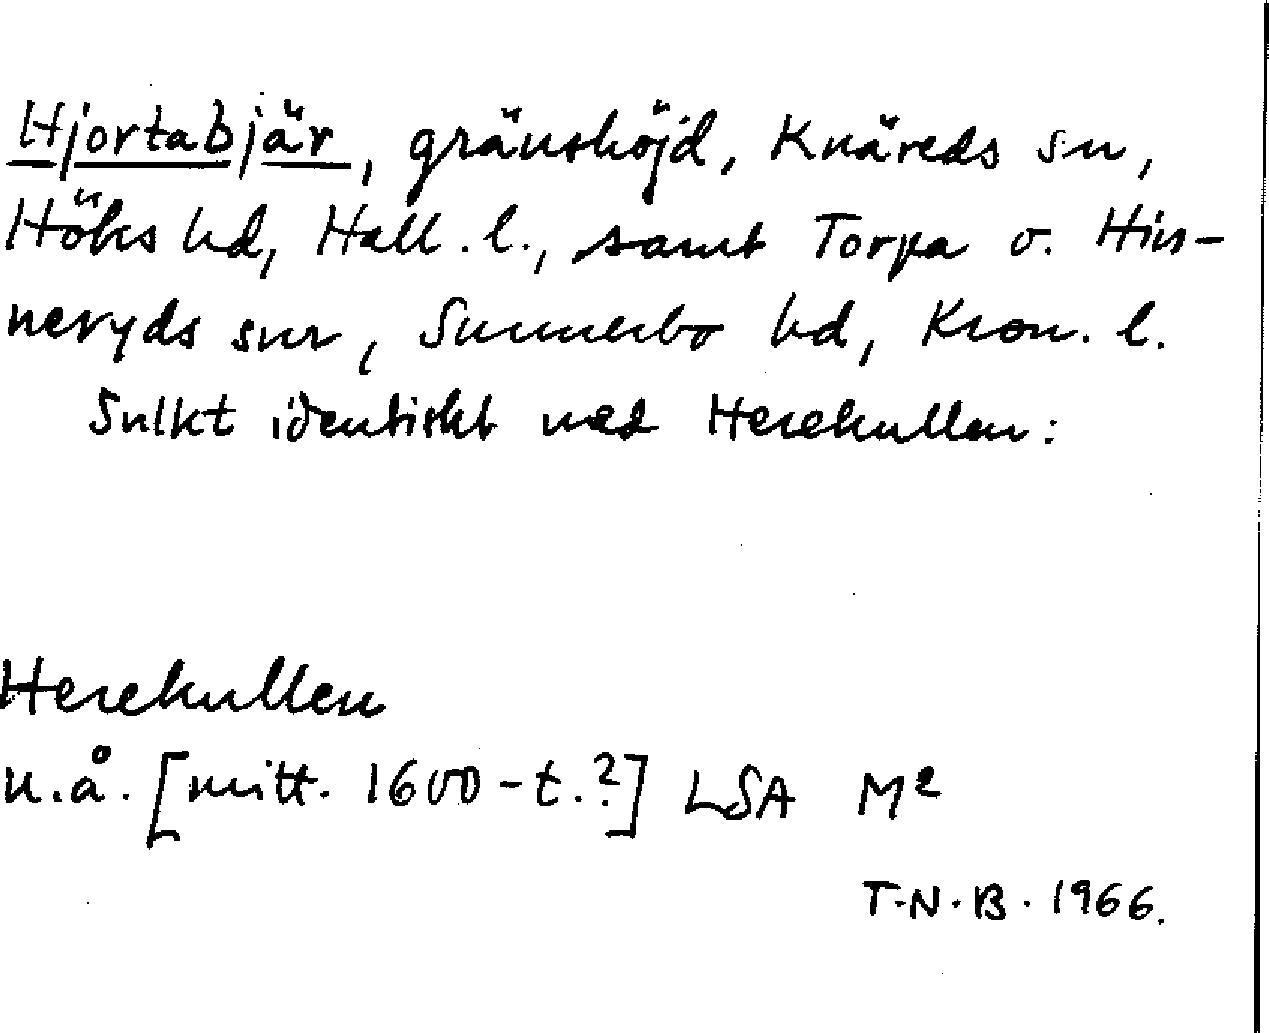 Hjortabjär, gränshöjd, Knäreds sn,
Höks hd, Hall. l., samt Torpa o. Hin-
neryds snr, Sunnerbo hd, Kron. l.
Snlkt identiskt med Herekullen:
Herekullen
u.å. [mitt. 1600-t.?] LSA M²
T.N.B. 1966.